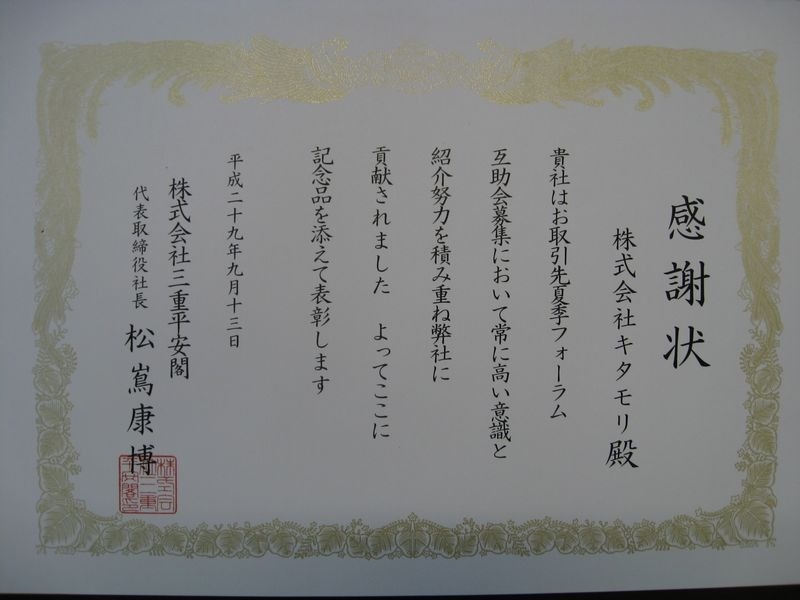 感謝状
株式会社キタモリ殿
貴社はお取引先夏季フォーラム
互助会募集において常に高い意識と
紹介努力を積み重ね弊社に
貢献されました よってここに
記念品を添えて表彰します
平成二十九年九月十三日
株式会社三重平安閣
代表取締役社長 松嶌康博